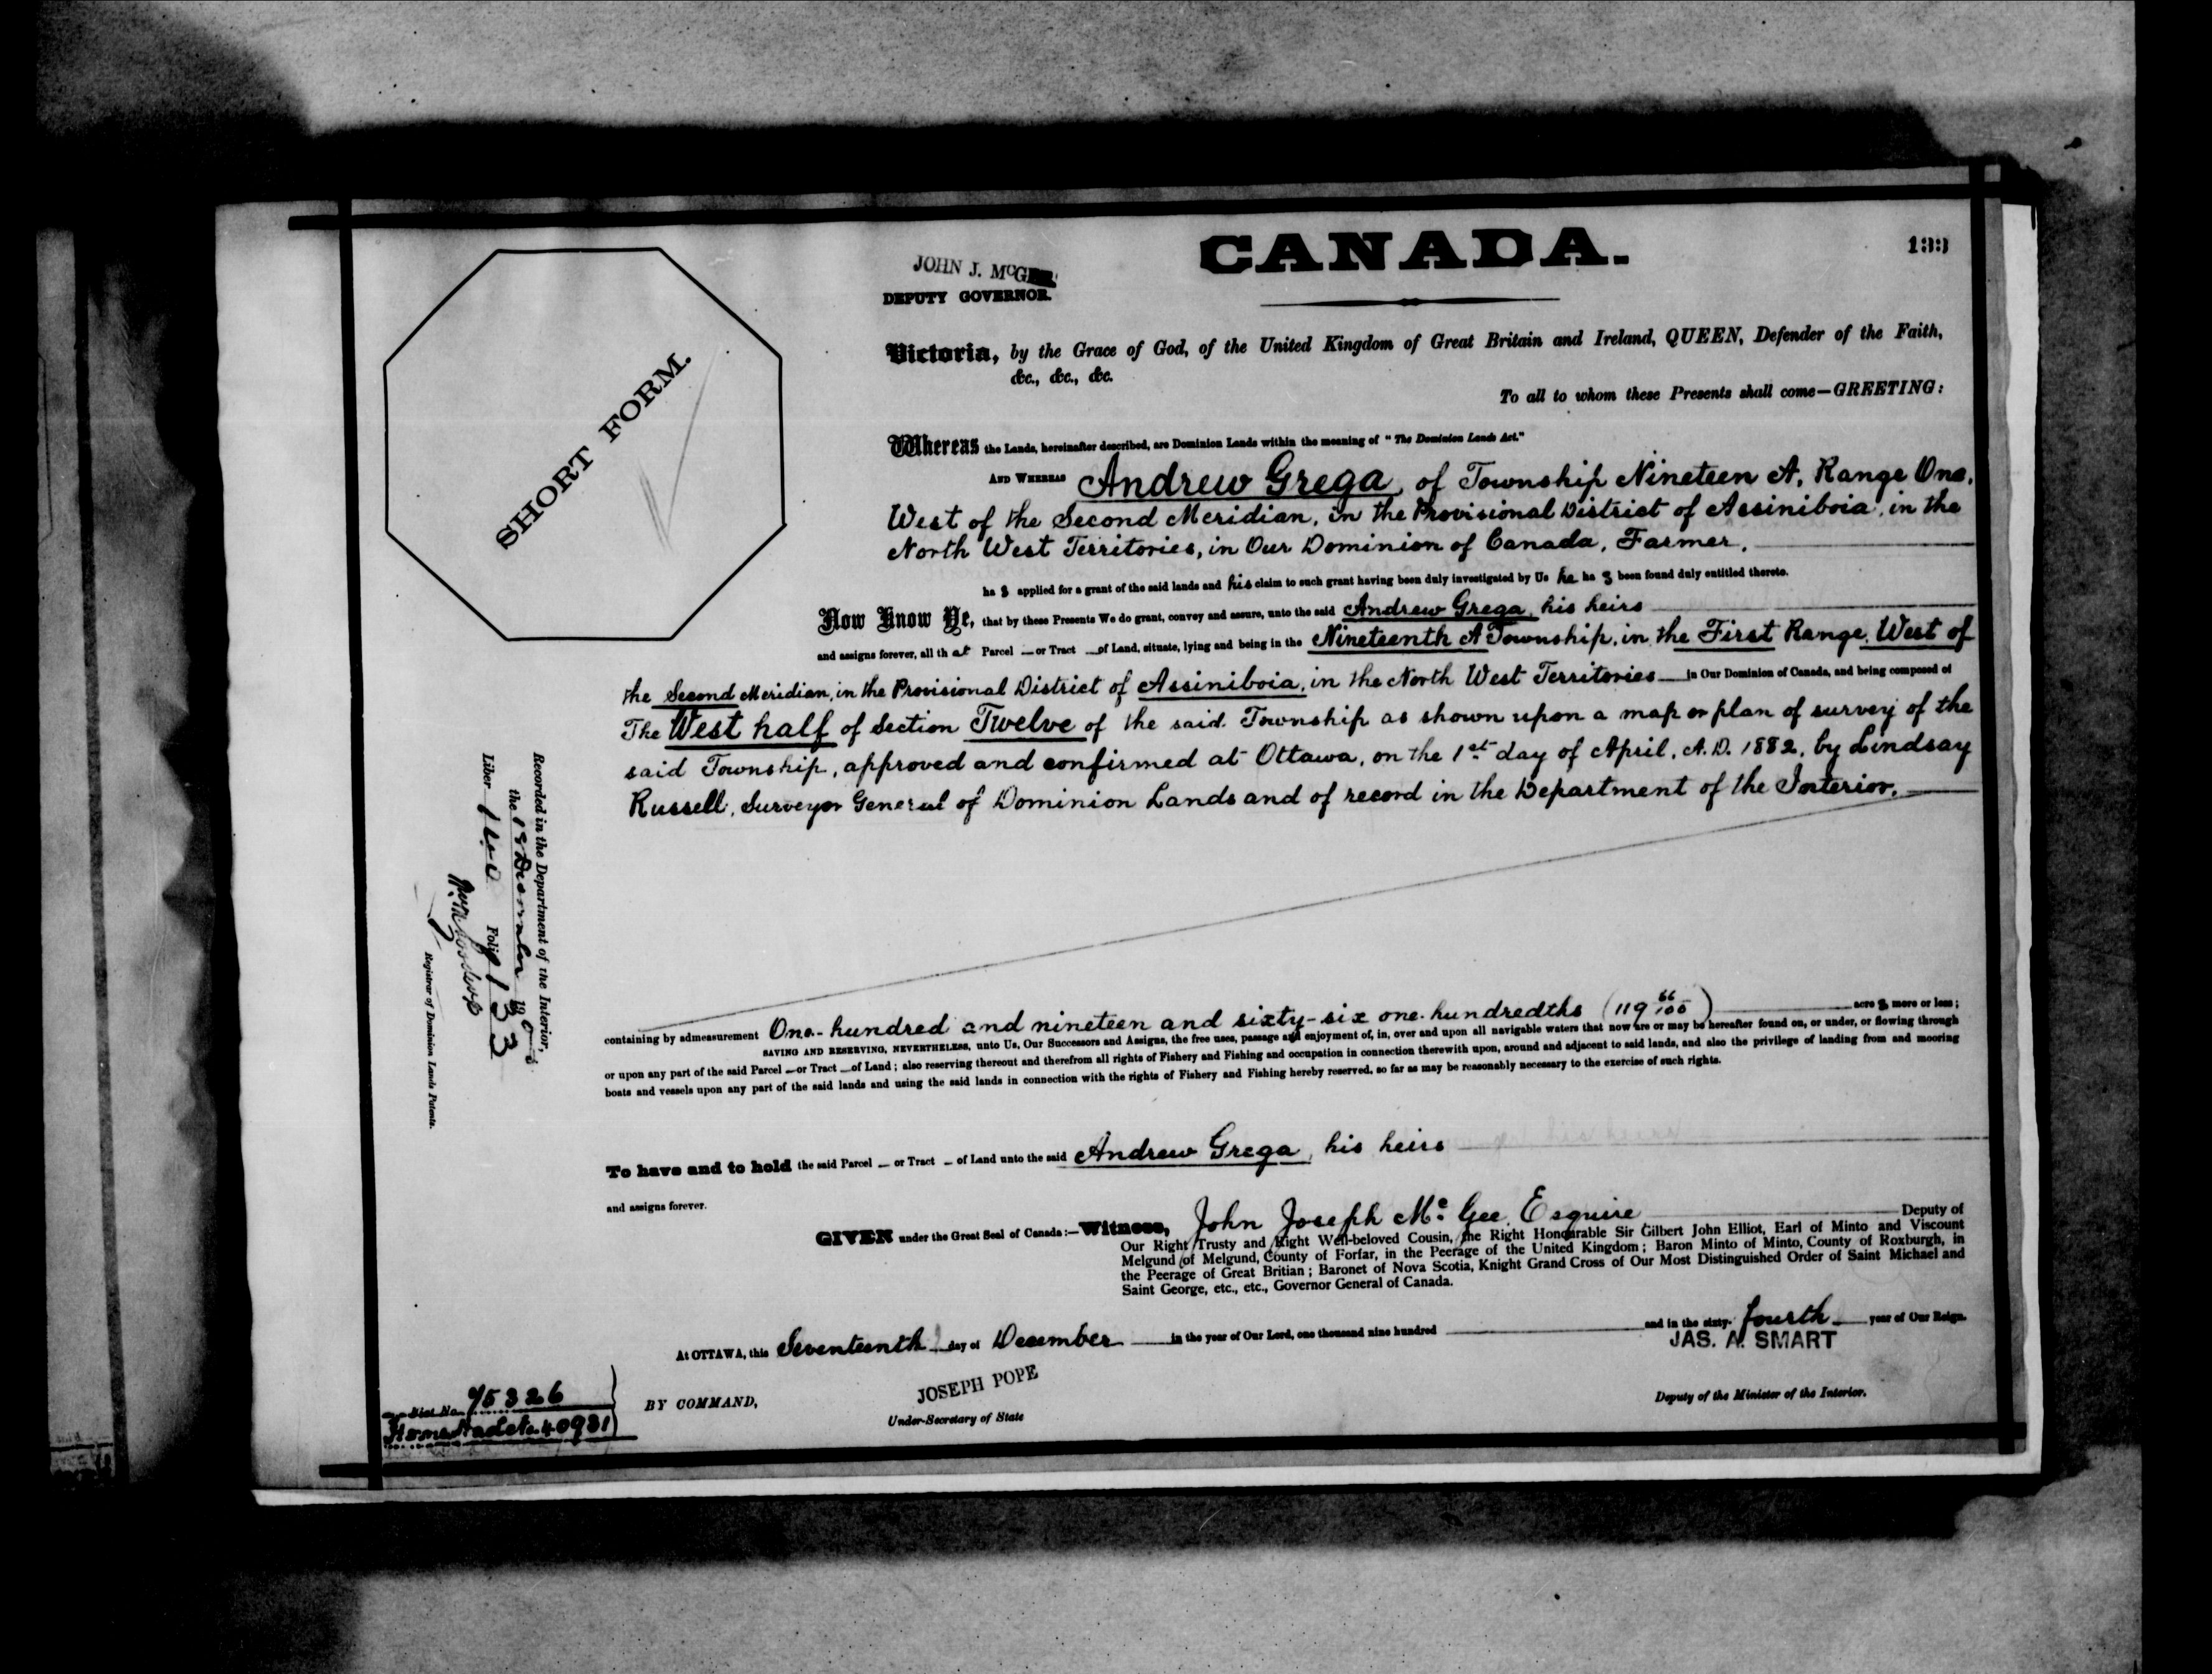 CANADA.
133
JOHN J. McGEE
DEPUTY GOVERNOR.
SHORT FORM.
Victoria, by the Grace of God, of the United Kingdom of Great Britain and Ireland, QUEEN, Defender of the Faith,
&c., &c., &c.
To all to whom these Presents shall come—GREETING:
Whereas the Lands, hereinafter described, are Dominion Lands within the meaning of "The Dominion Lands Act."
AND WHEREAS Andrew Grega, of Township Nineteen A, Range One,
West of the Second Meridian, in the Provisional District of Assiniboia, in the
North West Territories, in Our Dominion of Canada, Farmer,
ha s applied for a grant of the said lands and his claim to such grant having been duly investigated by Us he ha s been found duly entitled thereto.
Now Know Ye, that by these Presents We do grant, convey and assure, unto the said Andrew Grega, his heirs
and assigns forever, all th at Parcel — or Tract — of Land, situate, lying and being in the Nineteenth A Township, in the First Range, West of
the Second Meridian, in the Provisional District of Assiniboia, in the North West Territories — in Our Dominion of Canada, and being composed of
The West half of Section Twelve of the said Township as shown upon a map or plan of survey of the
said Township, approved and confirmed at Ottawa, on the 1st day of April, A.D. 1882, by Lindsay
Russell, Surveyor General of Dominion Lands and of record in the Department of the Interior.
containing by admeasurement One hundred and nineteen and sixty-six one hundredths (119 66/100) acre s more or less;
SAVING AND RESERVING, NEVERTHELESS, unto Us, Our Successors and Assigns, the free uses, passage and enjoyment of, in, over and upon all navigable waters that now are or may be hereafter found on, or under, or flowing through
or upon any part of the said Parcel — or Tract — of Land; also reserving thereout and therefrom all rights of Fishery and Fishing and occupation in connection therewith upon, around and adjacent to said lands, and also the privilege of landing from and mooring
boats and vessels upon any part of the said lands and using the said lands in connection with the rights of Fishery and Fishing hereby reserved, so far as may be reasonably necessary to the exercise of such rights.
To have and to hold the said Parcel — or Tract — of Land unto the said Andrew Grega, his heirs
and assigns forever.
GIVEN under the Great Seal of Canada:—Witness, John Joseph McGee, Esquire Deputy of
Our Right Trusty and Right Well-beloved Cousin, the Right Honourable Sir Gilbert John Elliot, Earl of Minto and Viscount
Melgund of Melgund, County of Forfar, in the Peerage of the United Kingdom; Baron Minto of Minto, County of Roxburgh, in
the Peerage of Great Britian; Baronet of Nova Scotia, Knight Grand Cross of Our Most Distinguished Order of Saint Michael and
Saint George, etc., etc., Governor General of Canada.
At OTTAWA, this Seventeenth day of December in the year of Our Lord, one thousand nine hundred and in the sixty-fourth year of Our Reign.
JAS. A. SMART
BY COMMAND,
JOSEPH POPE
Under-Secretary of State
Deputy of the Minister of the Interior.
Recorded in the Department of the Interior,
the 18 December 1900
Liber 140 Folio 133
Registrar of Dominion Lands Patents.
No. 95326
Homestead No. 40931